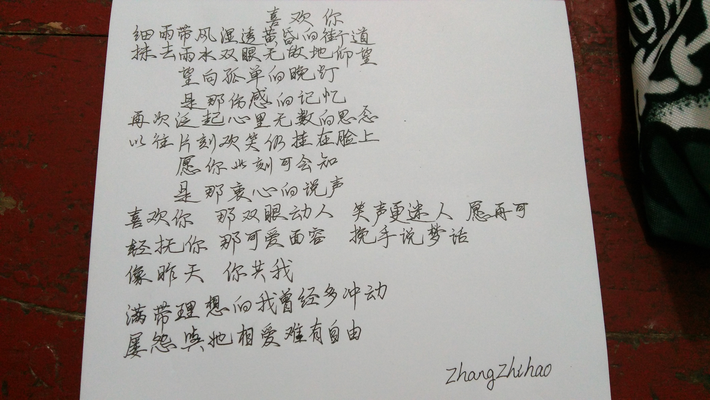 喜欢你
细雨带风湿透黄昏的街道
抹去雨水双眼无故地仰望
望向孤单的晚灯
是那伤感的记忆
再次泛起心里无数的思念
以往片刻欢笑仍挂在脸上
愿你此刻可会知
是那衷心的说声
喜欢你 那双眼动人 笑声更迷人 愿再可
轻抚你 那可爱面容 挽手说梦话
像昨天 你共我
满带理想的我曾经多冲动
屡怨与她相爱难有自由
ZhangZhihao